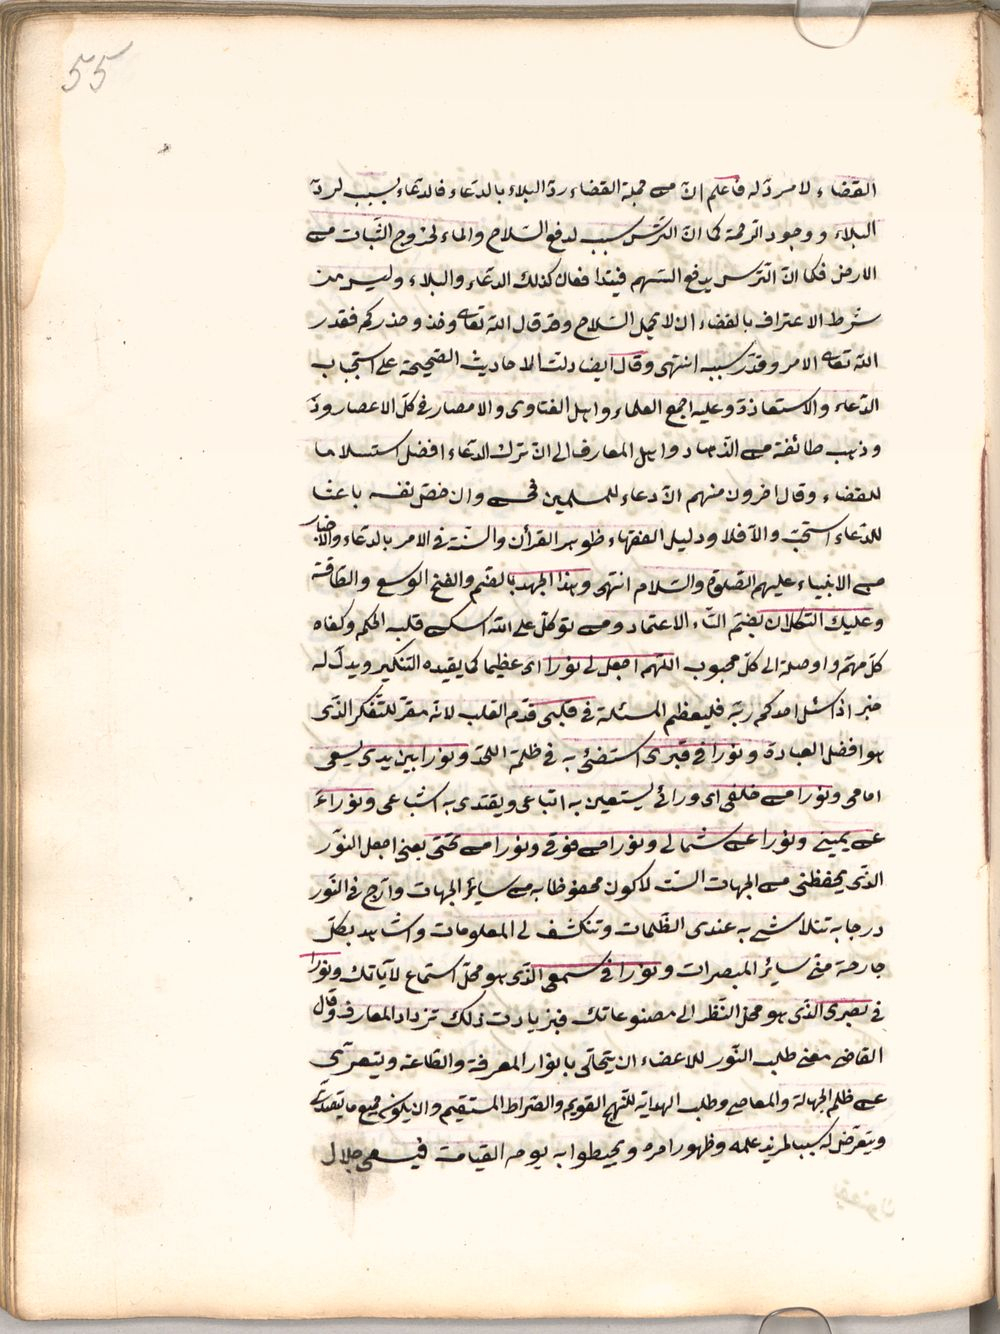 55
القضاء لا مردّ له فاعلم انّ من جملة القضاء ردّ البلاء بالدّعاء فالدّعاء سبب لردّ
البلاء ووجود الرحمة كما انّ التّرس سبب لدفع السّلاح والماء لخروج النّبات من
الارض فكما انّ التّرس يدفع السّهم فيتدافعان كذلك الدّعاء والبلاء وليس من
شرط الاعتراف بالقضاء ان لا يحمل السّلاح وقد قال الله تعالى وخذوا حذركم فقدر
الله تعالى الامر وقدّر سببه انتهى وقال ايضا دلت الاحاديث الصّحيحة على استحباب
الدّعاء والاستعاذة وعليه اجمع العلماء واهل الفتاوى والامصار في كلّ الاعصار
وذهب طائفة من الزّهاد واهل المعارف الى انّ ترك الدّعاء افضل استسلاما
للقضاء وقال اخرون منهم انّ دعاء للمسلمين فحسن وان خصّ نفسه باعثا
للدّعاء استحبّ والّا فلا ودليل الفقهاء ظواهر القرأن والسّنّة في الامر بالدّعاء والاخبار
من الانبياء عليهم الصّلوة والسّلام انتهى وهذا الجهد بالضّم والفتح الوسع والطّاقة
وعليك التّكلان بضمّ التّاء الاعتماد ومن توكّل على الله اسكن قلب الحكم وكفاه
كلّ مهمّ واوصله الى كلّ محبوب اللّهم اجعل لي نورا اى عظيما كما يفيده التّنكير ويدلّ له
خبر اذا سئل احدكم ربّه فليعظم المسئلة في قلبى قدّم القلب لانّه مقرّ للتّفكّر الذّى
هو افضل العبادة ونورا في قبرى استضئ به في ظلمة اللّحد ونورا بين يدى يسعى
امامى ونورا من خلفى اى ورائى ليستعين به اتباعى ويقتدى به اشياعى ونورا
عن يمينى ونورا عن شمالى ونورا من فوقى ونورا من تحتى يعنى اجعل النّور
الذّى يحفظنى من الجهات السّت لاكون محفوظا به من سائر الجهات وازج في النّور
زجا به تتلاشى به عندى الظّلمات وتنكشف لى المعلومات واشاهد بكلّ
جارحة منّى سائر المبصرات ونورا في سمعى الذّى هو محلّ استماع لآياتك ونورا
في بصرى الذّى هو محلّ النّظر الى مصنوعاتك فبزيادت ذلك تزداد المعارف قال
القاضى معنى طلب النّور للاعضاء ان يتحلّى بانوار المعرفة والطّاعة ويتعرّى
عن ظلم الجهالة والمعاصى وطلب الهداية للنّهج القويم والصّراط المستقيم وان يكون جميع ما
ويتعرّض له سببا لمزيد علمه وظهور امره ويحيطوا به يوم القيامة فيسعى خلال